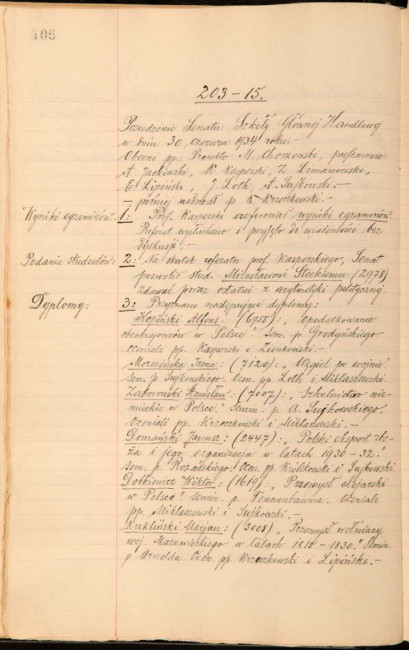 106
203-15.
Posiedzenie Senatu Szkoły Głównej Handlowej
w dniu 30 czerwca 1934 roku.-
Obecni pp. Prorektor M. Chorzewski, profesorowie
A. Jackowski, K. Kasperski, Z. Limanowski,
E. Lipiński, J. Loth, A. Sujkowski.-
- później nadszedł p. K. Krzeczkowski.-
Wyniki egzaminów: 1: Prof. Kasperski zreferował wyniki egzaminów.
Referat wysłuchano i przyjęto do wiadomości bez
dyskusji.-
Podania studentów: 2: Na skutek referatu prof. Kasperskiego, Senat
pozwolił stud. Mirosławowi Steckiemu (2978)
zdawać poraz ostatni z arytmetyki politycznej.
Dyplomy: 3: Przyznano następujące dyplomy:
Kopiński Alfons: (6955): "Opodatkowanie
obcokrajowców w Polsce." Sem. p. Grodyńskiego.
Oceniali pp. Kasperski i Zienkowski.-
Irena: (7120): "Węgiel po wojnie"
sem. p. Sujkowskiego. Ocen. pp. Loth i Miklaszewski.
Zaborowski Stanisław: (7007): "Szkolnictwo nie-
mieckie w Polsce." Semin. p. A. Sujkowskiego.
Oceniali pp. Krzeczkowski i Miklaszewski.-
Domański Janusz: (2447): "Polski eksport zbo-
ża i jego organizacja w latach 1930-32."
sem. p. Rożańskiego. Ocen. pp. i Sujkowski.
Dotkiewicz Wiktor: (1619): "Przemysł olejarski
w Polsce" semin. p. Tennenbauma. Oceniali
pp. Miklaszewski i Sujkowski.-
Rukliński Marjan: (3008) "Przemysł wełniany
woj. Mazowieckiego w latach 1815-1830." Semin.
p Arnolda. Ocen. pp. Krzeczkowski i Lipiński.-